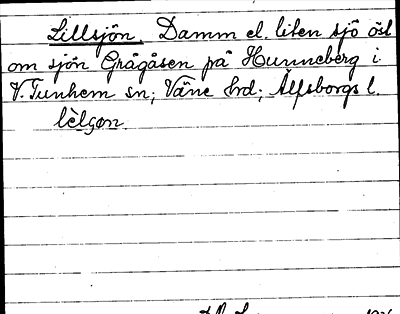 Lillsjön. Damm el. liten sjö öst
om sjön Grågåsen på Hunneberg i
V. Tunhem sn; Väne hrd; Älfsborgs l.
lèlʃøn.